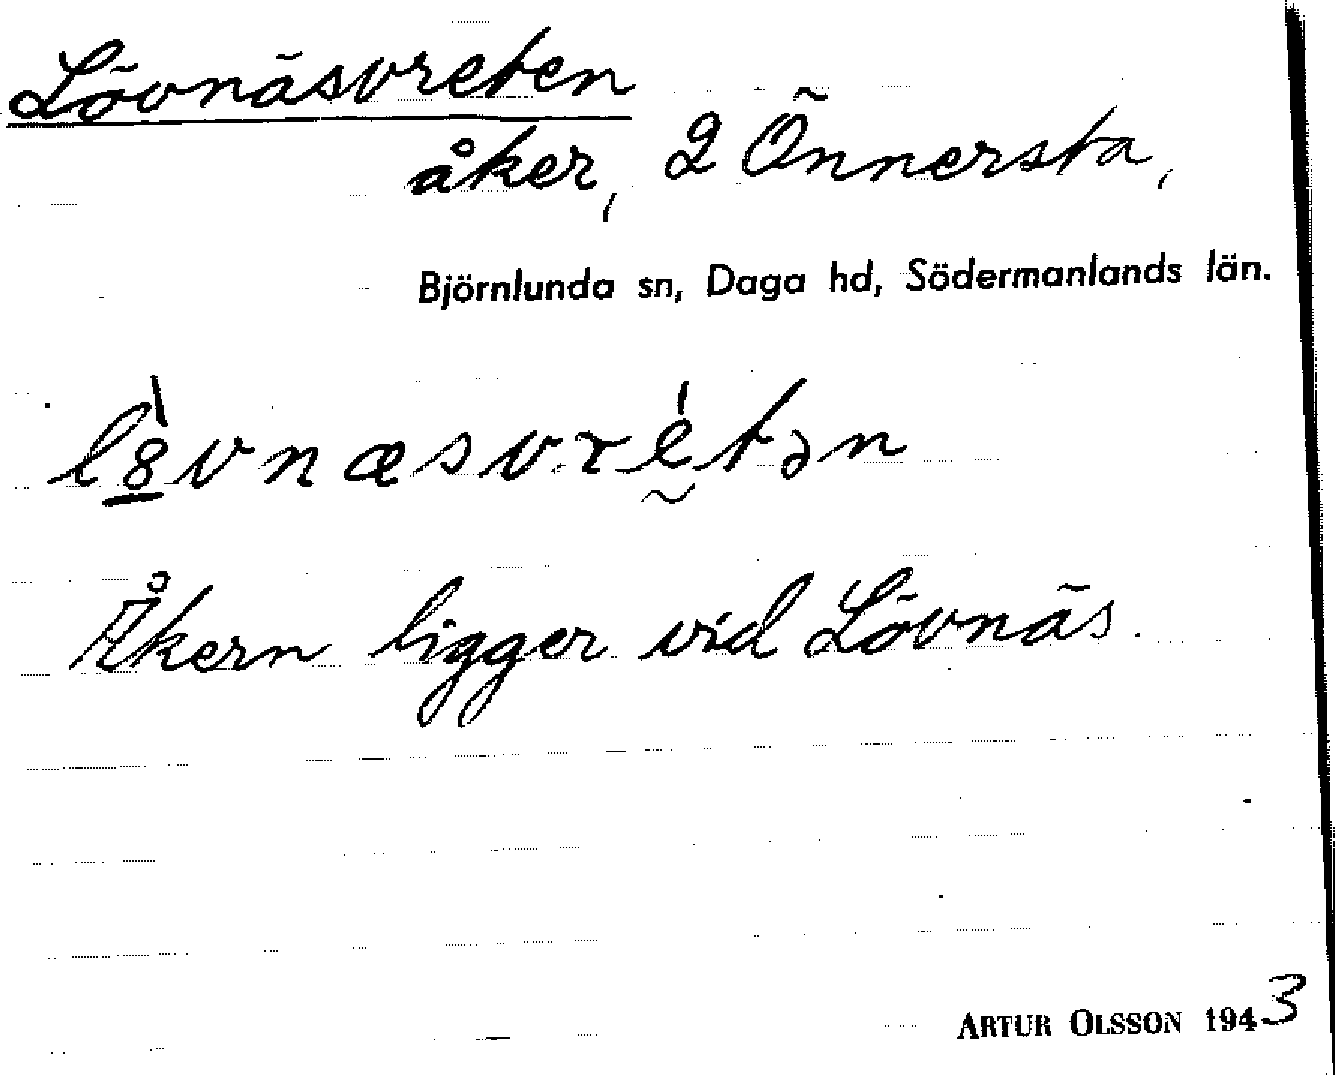 Lövnäsvreten
åker, 2 Önnersta,
Björnlunda sn, Daga hd, Södermanlands län.
l8̲̀vnæsvrḛ́tən
Åkern ligger vid Lövnäs.
ARTUR OLSSON 1943